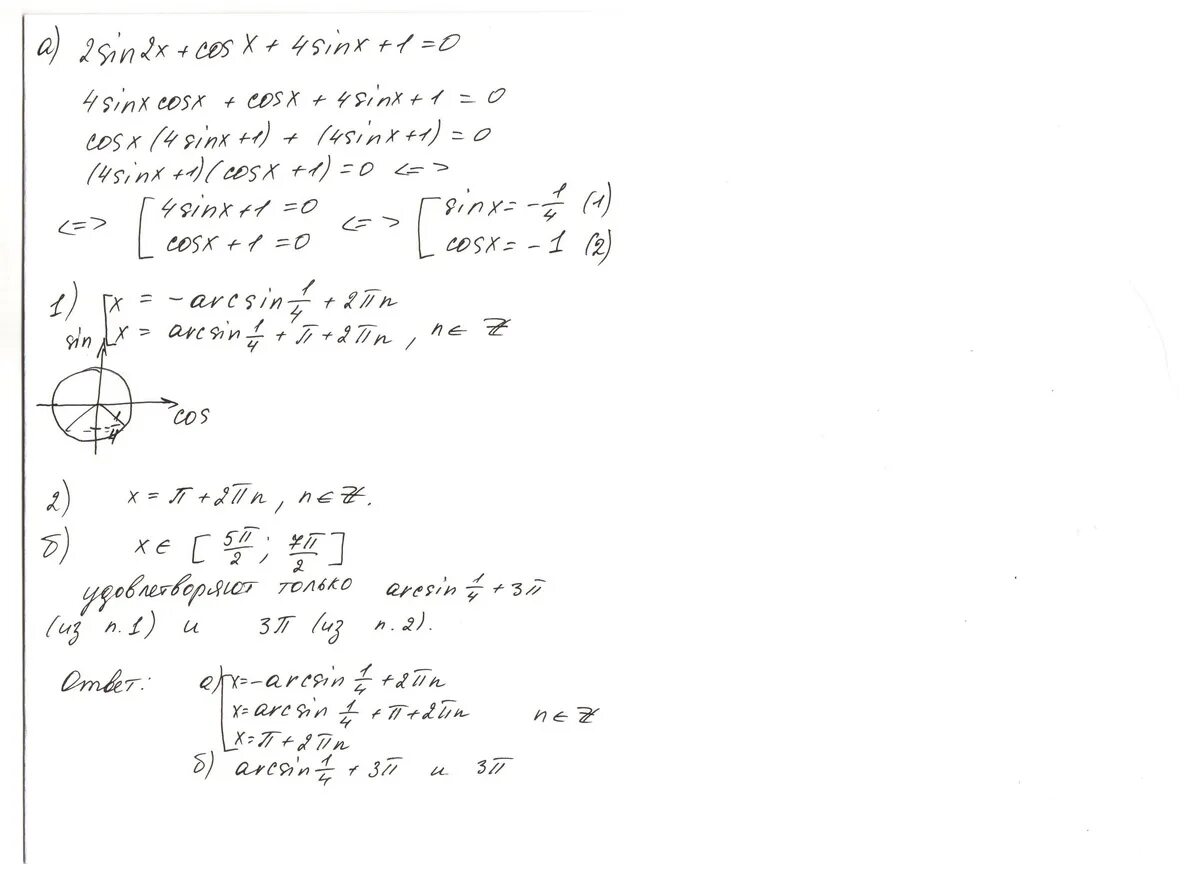 а) 2sin2x + cos x + 4sinx + 1 = 0
4sinx cosx + cosx + 4sinx + 1 = 0
cosx (4sinx + 1) + (4sinx + 1) = 0
(4sinx + 1)(cosx + 1) = 0 <=>
<=> [ 4sinx + 1 = 0 <=> [ sinx = -1/4 (1)
cosx + 1 = 0 cosx = -1 (2)
1) [ x = -arcsin 1/4 + 2πn
x = arcsin 1/4 + π + 2πn, n ∈ Z
sin
cos
-1/4
2) x = π + 2πn, n ∈ Z.
б) x ∈ [5π/2; 7π/2]
удовлетворяют только arcsin 1/4 + 3π
(из п.1) и 3π (из п.2).
Ответ: а) [ x = -arcsin 1/4 + 2πn
x = arcsin 1/4 + π + 2πn n ∈ Z
x = π + 2πn
б) arcsin 1/4 + 3π и 3π